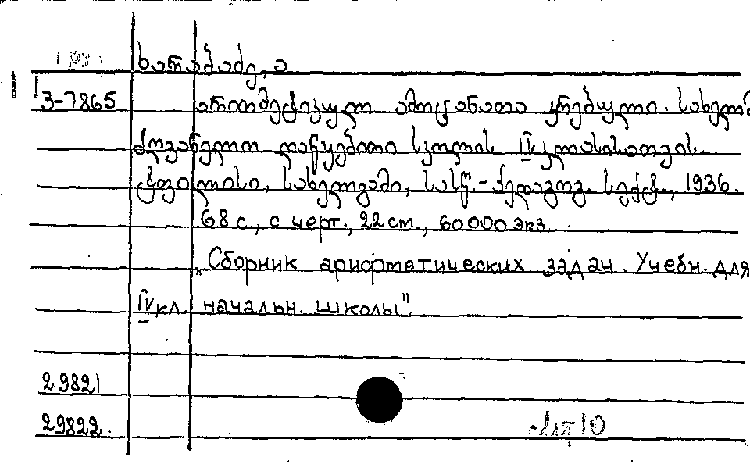 3-7865 არითმეტიკულ ამოცანათა კრებული. სახელმ-
ძღვანელო დაწყებითი სკოლის IV კლასისათვის.
ტფილისი, სახელგამი, სასწ.-პედაგოგ. სექტ., 1936.
68 с., с черт., 22 см., 60000 экз.
"Сборник арифметических задач. Учебн. для
IV кл. начальн. школы".
29821
29822.